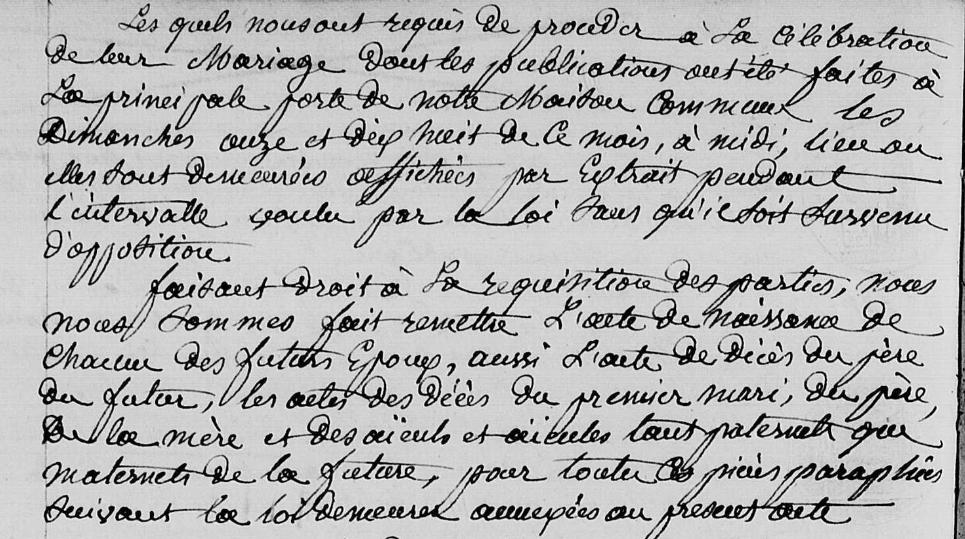 Les quels nous ont requis de procéder à La Célébration
de leur Mariage dont les publications ont été faites à
La principale porte de notre Maison Commune les
Dimanches onze et dix huit de Ce mois, à midi, lieu ou
elles sont demeurées affichées par Extrait pendant
l'intervalle voulu par la loi Sans qu'il soit Survenu
d'opposition.
faisant Droit à La requisition des parties, nous
nous Sommes fait remettre L'acte de naissance de
Chacun des futurs Epoux, aussi L'acte de décès du père
du futur, les actes des décès du premier mari, du père,
De la mère et des aïeuls et aïeules tant paternels que
maternels de la future, pour toutes Ces pièces paraphées
suivant la loi demeurer annexées au présent acte